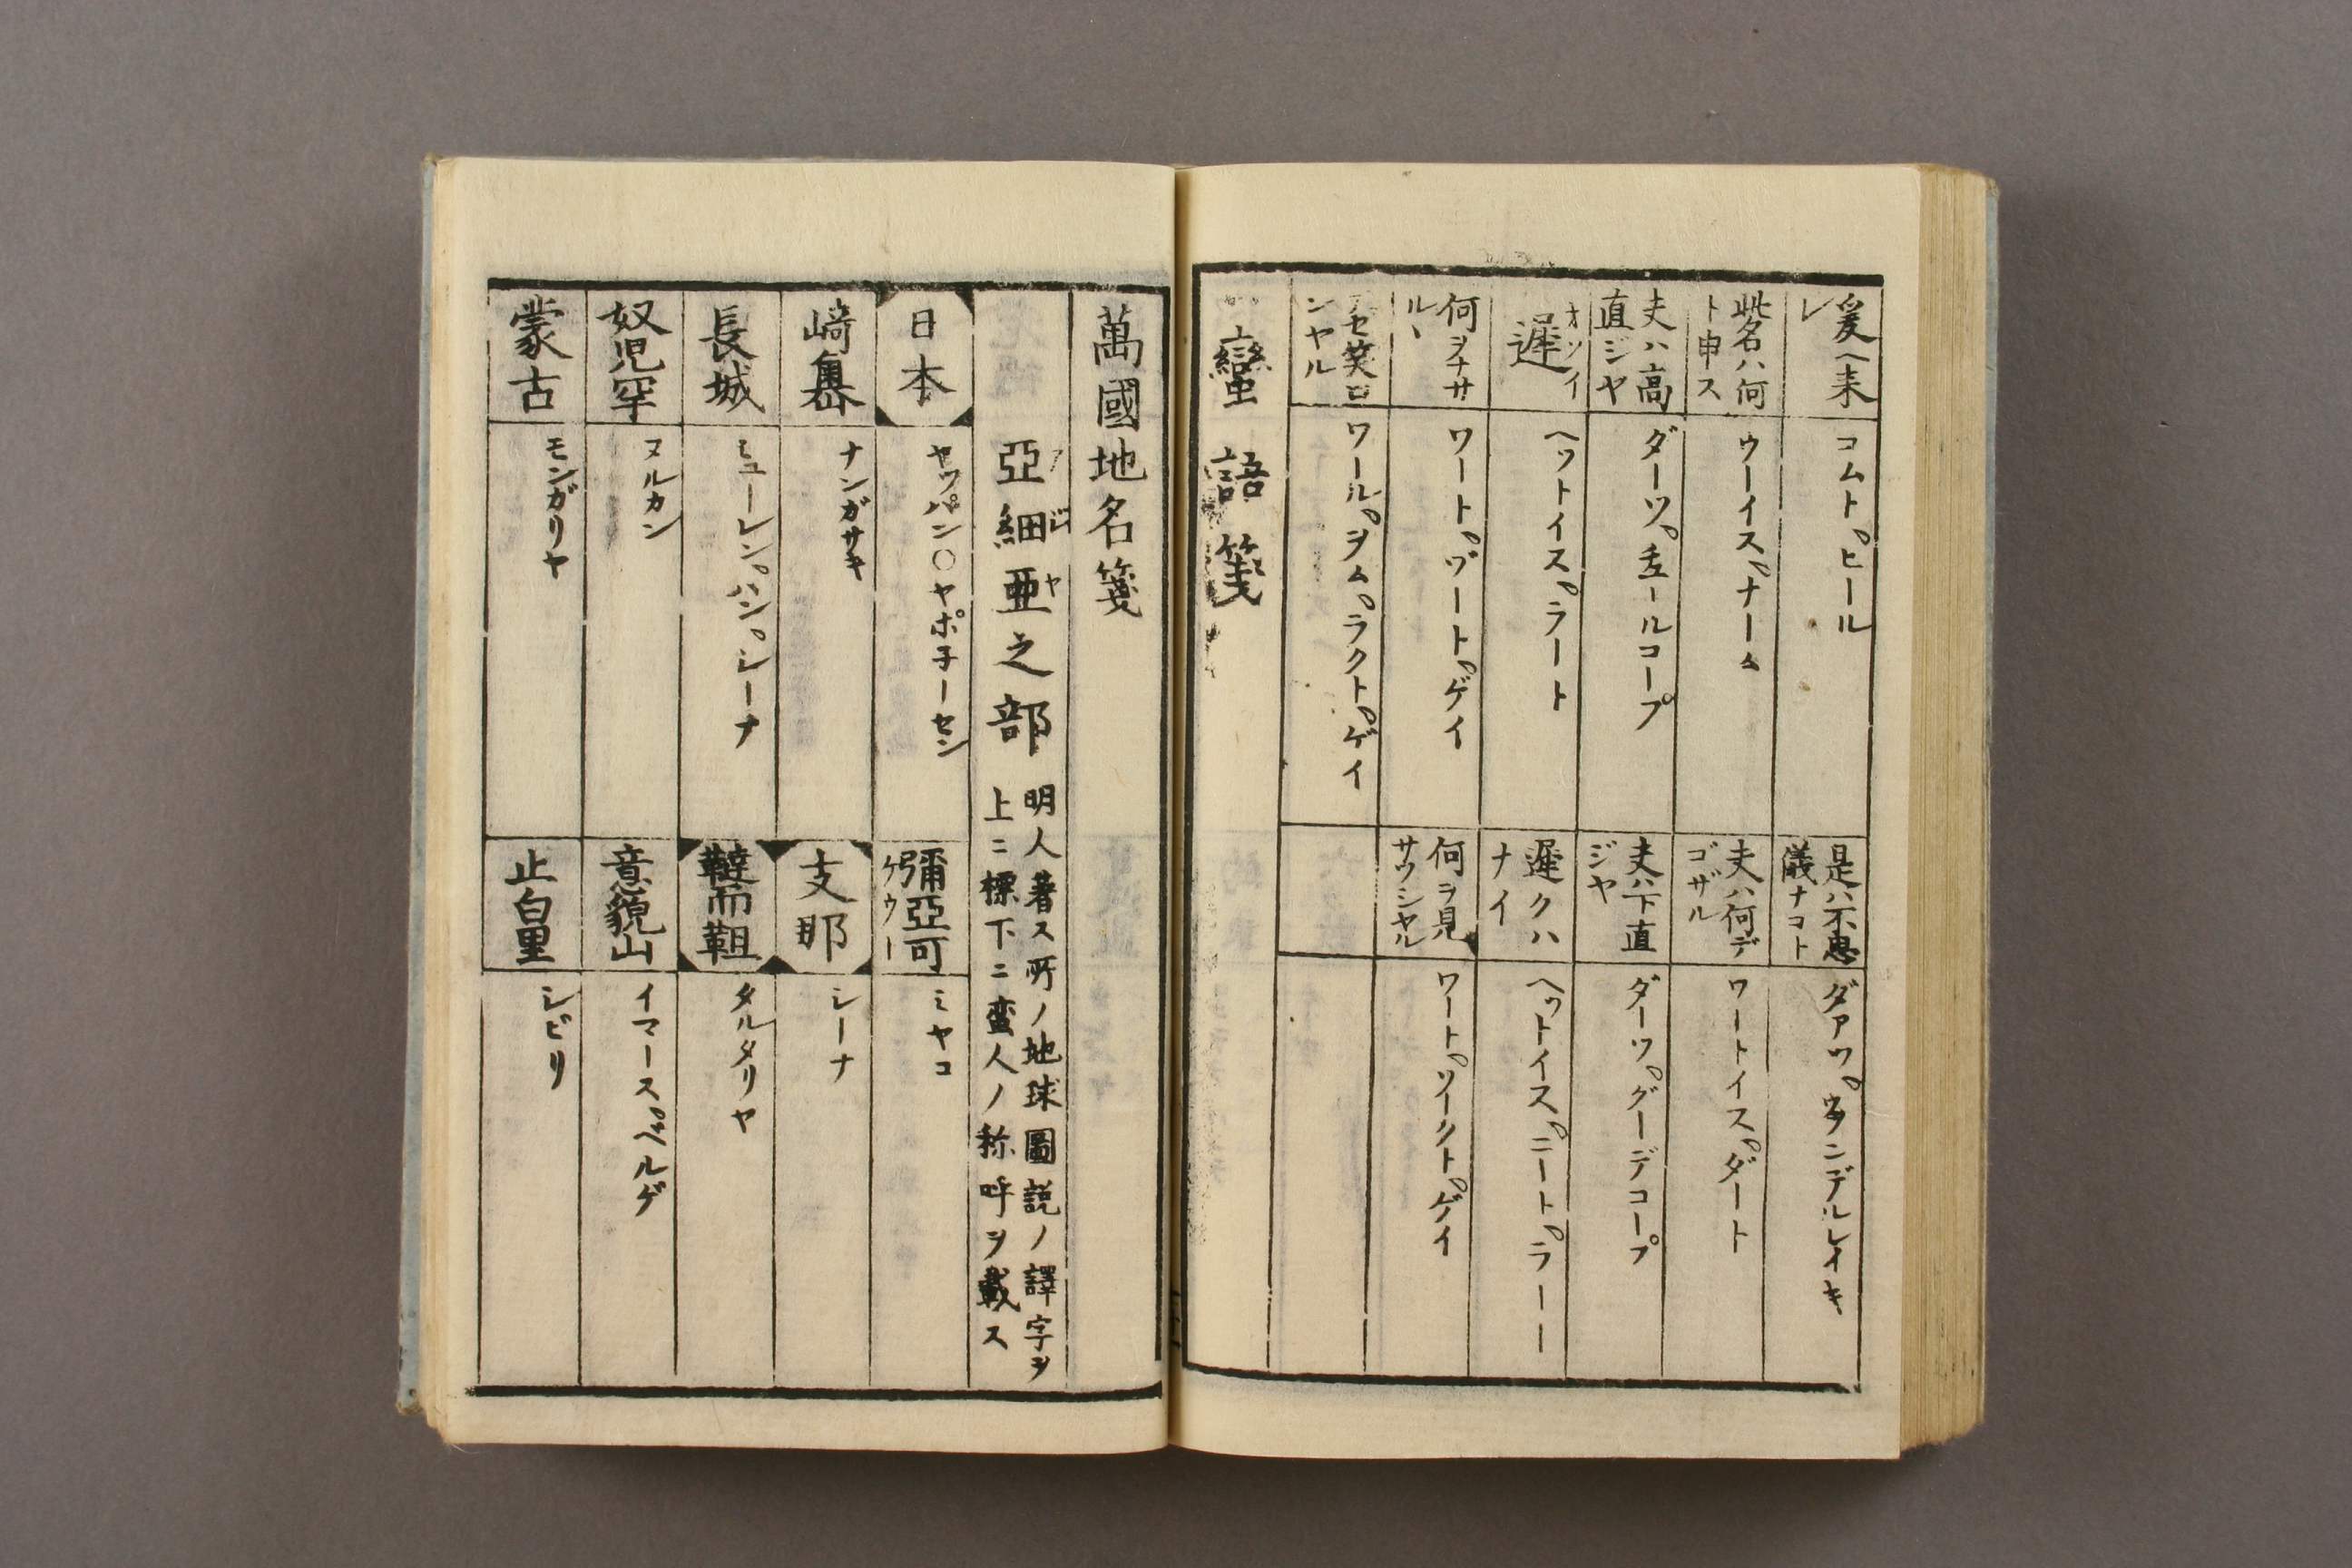 爰ヘ来レ
コムト゜ヒール
是ハ不思儀ナコト
ダアツ゜ヲンデルレイキ
此名ハ何ト申ス
ウーイス゜ナーム
夫ハ何デゴザル
ワートイス゜ダート
夫ハ高直ジヤ
ダーツ゜デールコープ
夫ハ下直ジヤ
ダーツ゜グーデコープ
遅
オソイ
ヘットイス゜ラート
遅クハナイ
ヘットイス゜ニート゜ラーー
何ヲナサル丶
ワート゜ヅート゜ゲイ
何ヲ見サウシヤル
ワート゜ソイクト゜ゲイ
ナセ笑ロンヤル
ワール゜ヲム゜ラクト゜ゲイ
蠻語箋
萬國地名箋
亞細亜之部
アジヤ
明人著ス所ノ地球圖説ノ譯字ヲ
上ニ標下ニ蛮人ノ称呼ヲ載ス
日本
ヤツパン○ヤポ子ーセン
彌亞可
ケウー
ミヤコ
﨑嶴
ナンガサキ
支那
シーナ
長城
ミューレン゜ハン゜シーナ
韃而靼
タルタリヤ
奴児罕
ヌルカン
意貌山
イマース゜ベルゲ
蒙古
モンガリヤ
止白里
シビリ